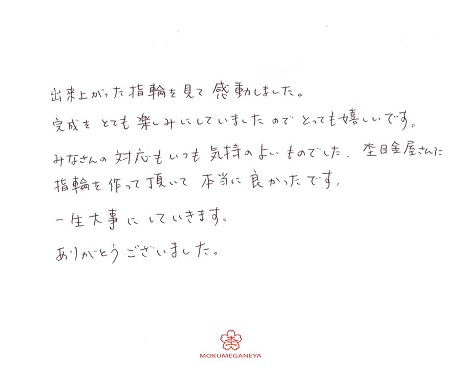 出来上がった指輪を見て感動しました。
完成をとても楽しみにしていましたのでとっても嬉しいです。
みなさんの対応もいつも気持のよいものでした。杢目金屋さんに
指輪を作って頂いて本当に良かったです。
一生大事にしていきます。
ありがとうございました。
MOKUMEGANEYA